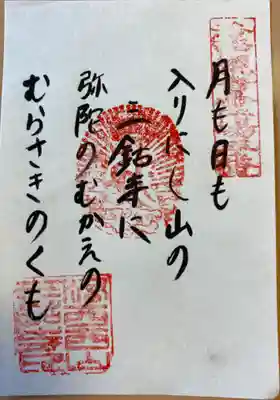 月も日も
入りにし山の
三鈷寺に
弥陀のむかえの
むらさきのくも